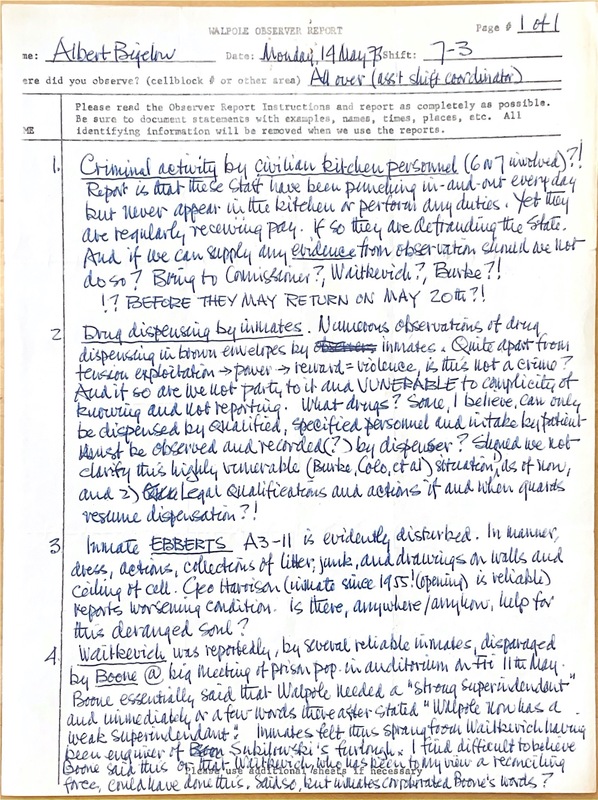 WALPOLE OBSERVER REPORT
Page # 1 of 1
me: Albert Bigelow Date: Monday, 14 May 73 Shift: 7-3
ere did you observe? (cellblock # or other area) All over (ass't shift coordinator)
Please read the Observer Report Instructions and report as completely as possible.
Be sure to document statements with examples, names, times, places, etc. All
ME identifying information will be removed when we use the reports.
1. Criminal activity by civilian kitchen personnel (6 or 7 involved)?!
Report is that these staff have been punching in-and-out every day
but never appear in the kitchen or perform any duties. Yet they
are regularly receiving pay. If so they are defrauding the State.
And if we can supply any evidence from observation should we not
do so? Bring to Commissioner?, Waitkevich?, Burke?!
!? BEFORE THEY MAY RETURN ON MAY 20th?!
2 Drug dispensing by inmates. Numerous observations of drug
dispensing in brown envelopes by observers inmates. Quite apart from
tension exploitation → power → reward = violence, is this not a crime?
And if so are we not party to it and VUNERABLE to complicity of
knowing and not reporting. What drugs? Some, I believe, can only
be dispensed by qualified, specified personnel and intake by patient
must be observed and recorded(?) by dispenser? Should we not
clarify this highly vulnerable (Burke, Colo, et al) situation, as of now,
and 2) Legal Qualifications and actions if and when guards
resume dispensation?!
3 Inmate EBBERTS A3-11 is evidently disturbed. In manner,
dress, actions, collections of litter, junk, and drawings on walls and
ceiling of cell. Geo Harrison (inmate since 1955! (opening) is reliable)
reports worsening condition. Is there, anywhere/anyhow, help for
this deranged soul?
4. Waitkevich was reportedly, by several reliable inmates, disparaged
by Boone @ big meeting of prison pop. in auditorium on Fri 11th May.
Boone essentially said that Walpole needed a "strong superintendent"
and immediately or a few words thereafter stated "Walpole now has a
weak superintendent". Inmates felt this sprang from Waitkevich having
been engineer of Boon Subilowski's furlough. I find difficult to believe
Boone said this or that Waitkevich, who has been to my view a reconciling
Please use additional sheets if necessary
force, could have done this. Said so, but inmates corroborated Boone's words?